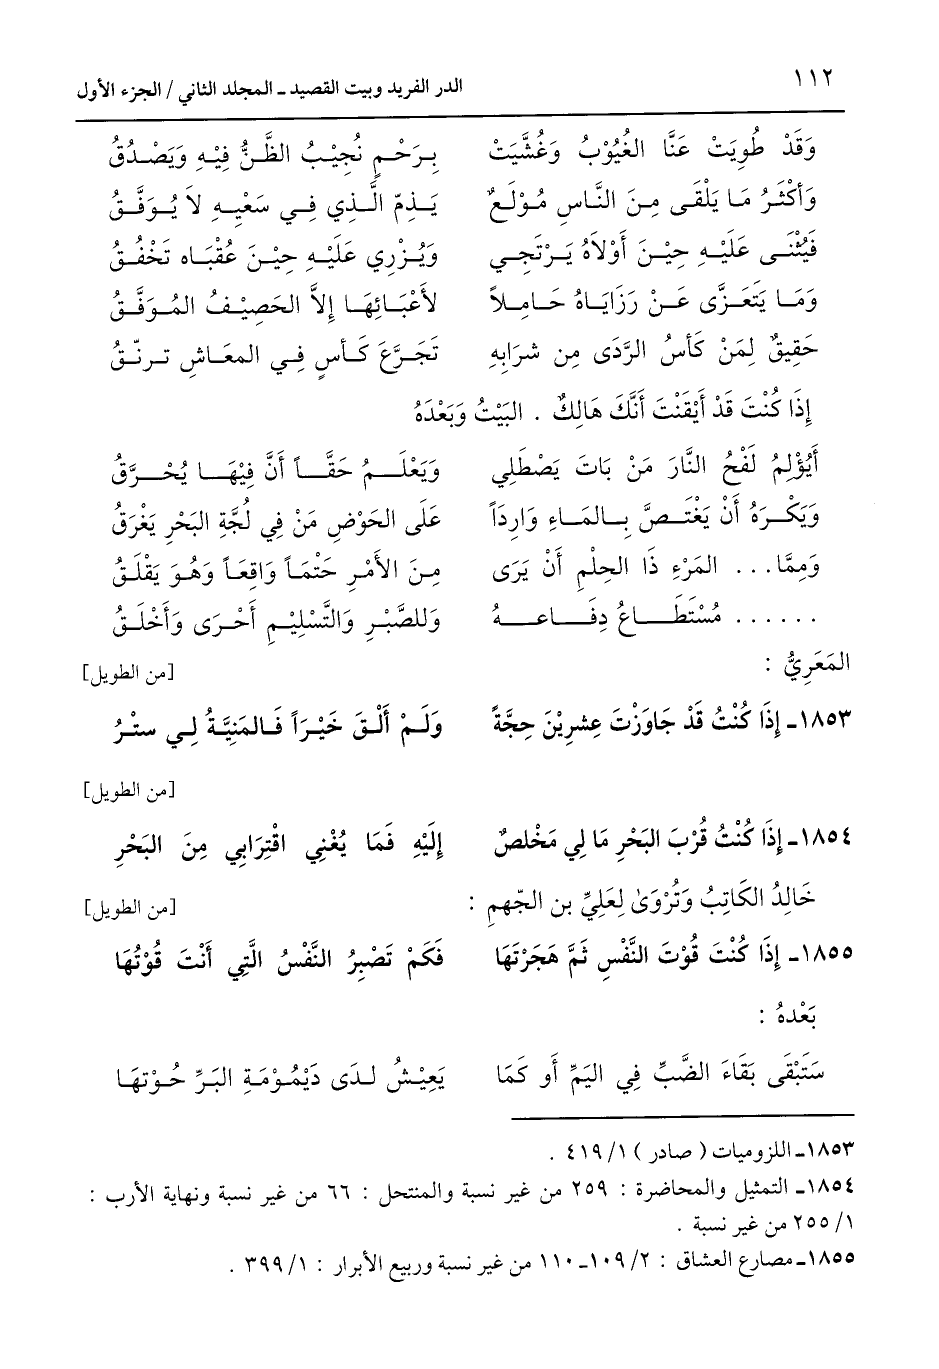 ١١٢ الدر الفريد وبيت القصيد ـ المجلد الثاني / الجزء الأول
وَقَدْ طُوِيَتْ عَنَّا الغُيُوْبُ وَغُشِّيَتْ بِرَحْمٍ نُجِيْبُ الظَّنُّ فِيْهِ وَيَصْدُقُ
وَأَكْثَرُ مَا يَلْقَى مِنَ النَّاسِ مُوْلَعٌ يَذِمّ الَّذِي فِي سَعْيِهِ لاَ يُوَفَّقُ
فَيُثْنَى عَلَيْهِ حِيْنَ أَوْلاَهُ يَرْتَجِي وَيُزْرِي عَلَيْهِ حِيْنَ عُقْبَاه تَخْفُقُ
وَمَا يَتَعَزَّى عَنْ رَزَايَاهُ حَامِلاً لأَعْبَائِهَا إِلاَّ الحَصِيْفُ المُوَفَّقُ
حَقِيقٌ لِمَنْ كَأسُ الرَّدَى مِن شرَابِهِ تَجَرَّعَ كَأسٍ فِي المعَاشِ ترنّقُ
إِذَا كُنْتَ قَدْ أَيْقَنْتَ أَنَّكَ هَالِكٌ . البَيْتُ وَبَعْدَهُ
أَيُؤْلِمُ لَفْحُ النَّارَ مَنْ بَاتَ يَصْطَلِي وَيَعْلَمُ حَقَّاً أَنَّ فِيْهَا يُحْرَّقُ
وَيَكْرَهُ أَنْ يَغْتَصَّ بِالمَاءِ وَارِدَاً عَلَى الحَوْضِ مَنْ فِي لُجَّةِ البَحْرِ يَغْرَقُ
وَمِمَّا... المَرْءِ ذَا الحِلْمِ أَنْ يَرَى مِنَ الأَمْرِ حَتْمَاً وَاقِعَاً وَهُوَ يَقْلَقُ
...... مُسْتَطَاعُ دِفَاعهُ وَللصَّبْرِ وَالتَّسْلِيْمِ أَحْرَى وَأَخْلَقُ
المَعَرِيُّ : [من الطويل]
١٨٥٣ـ إِذَا كُنْتُ قَدْ جَاوَزْتَ عِشرِيْنَ حِجَّةً وَلَمْ أَلْقَ خَيْرَاً فَالمَنِيَّةُ لِي ستْرُ
[من الطويل]
١٨٥٤ـ إِذَا كُنْتُ قُرْبَ البَحْرِ مَا لِي مَخْلصٌ إِلَيْهِ فَمَا يُغْنِي اقْتِرَابِي مِنَ البَحْرِ
خَالِدُ الكَاتِبُ وَتُرْوَىٰ لِعَلِيِّ بن الجّهمِ : [من الطويل]
١٨٥٥ـ إِذَا كُنْتَ قُوْتَ النَّفْسِ ثمَّ هَجَرْتَهَا فَكَمْ تَصْبِرُ النَّفْسُ الَّتِي أَنْتَ قُوْتُهَا
بَعْدهُ :
سَتَبْقَى بَقَاءَ الضَّبِّ فِي اليَمِّ أَو كَمَا يَعِيْشُ لدَى دَيْمُوْمَةِ البَرِّ حُوْتهَا
١٨٥٣ـ اللزوميات ( صادر ) ١/ ٤١٩ .
١٨٥٤ـ التمثيل والمحاضرة : ٢٥٩ من غير نسبة والمنتحل : ٦٦ من غير نسبة ونهاية الأرب :
١/ ٢٥٥ من غير نسبة .
١٨٥٥ـ مصارع العشاق : ٢/ ١٠٩ـ ١١٠ من غير نسبة وربيع الأبرار : ١/ ٣٩٩ .